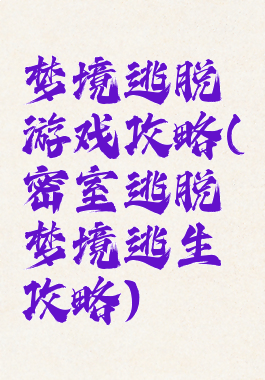 梦境逃脱
游戏攻略(
密室逃脱
梦境逃生
攻略)